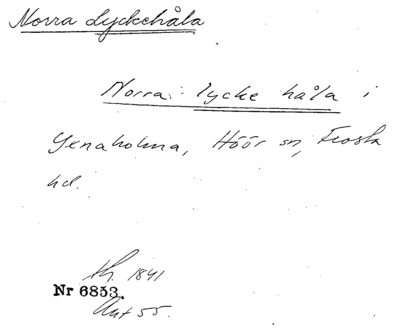 Norra Lyckehåla
Norra lycke håla i
Yxnaholma, Höör sn, Frosta
hd.
lh. 1841
Nr 6853.
Ant 55.